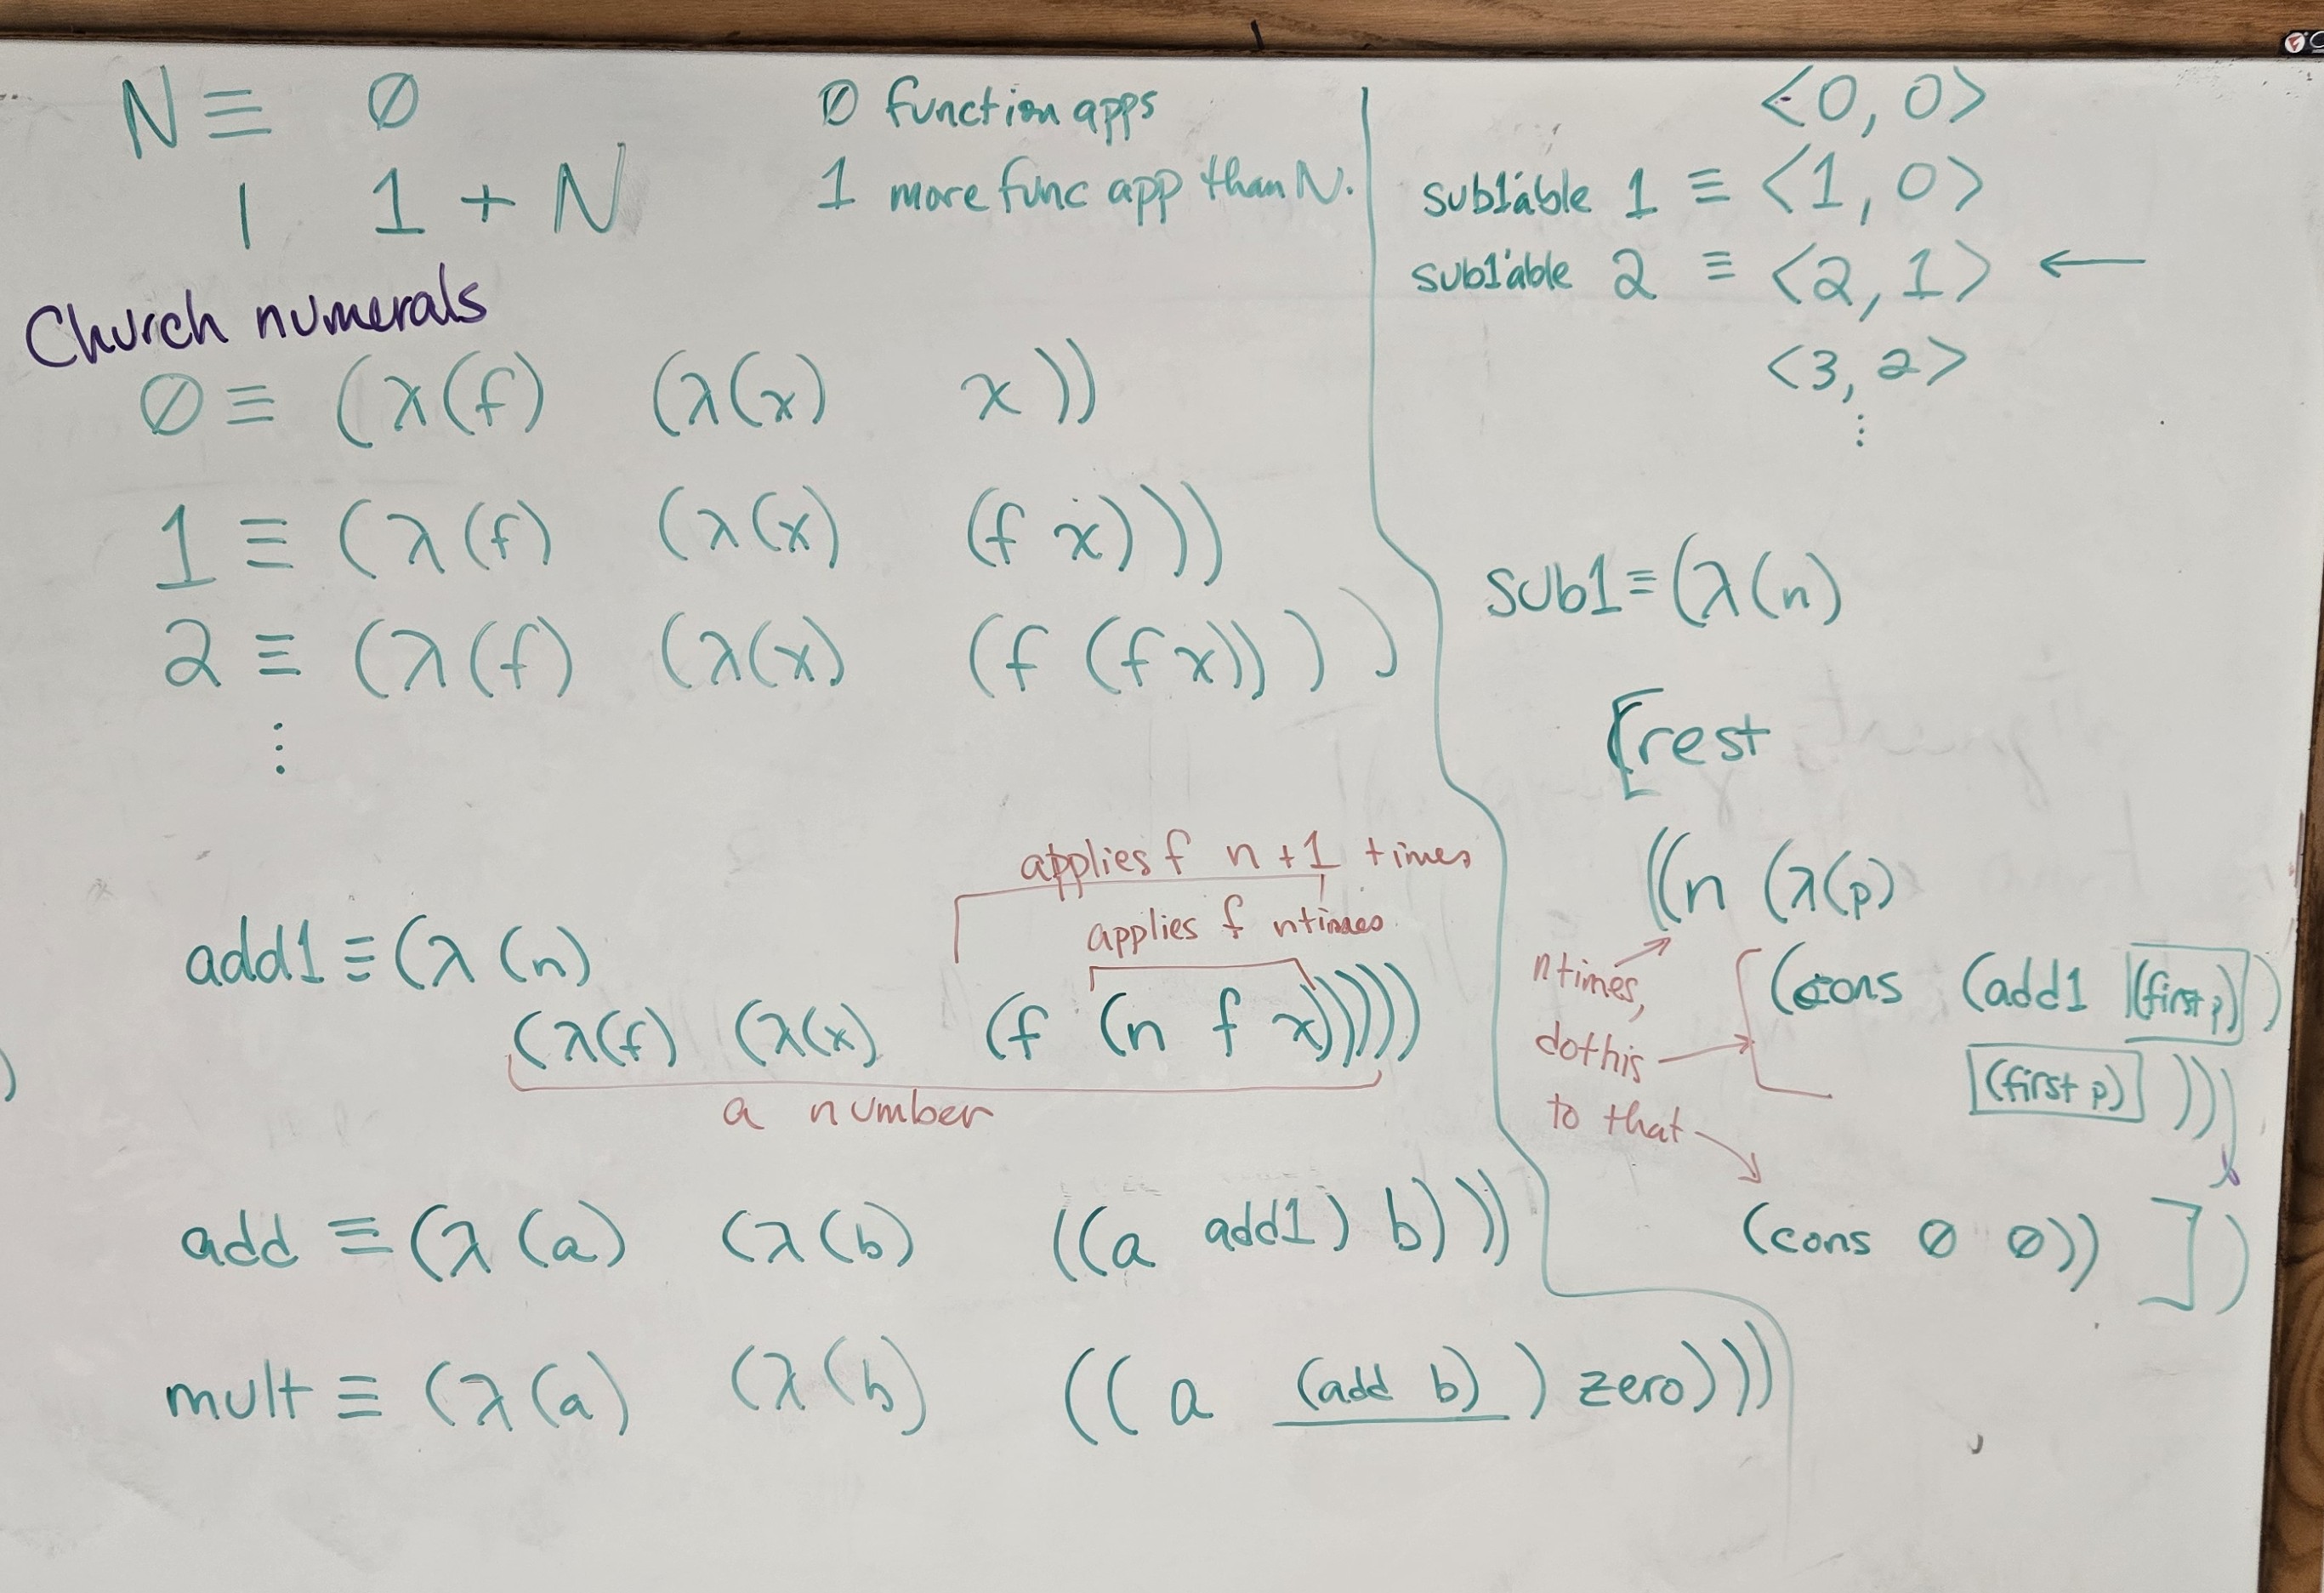 N ≡ Ø
| 1 + N
Ø function apps
1 more func app than N.
Church numerals
Ø ≡ (λ(f) (λ(x) x))
1 ≡ (λ(f) (λ(x) (f x)))
2 ≡ (λ(f) (λ(x) (f (f x))))
⋮
applies f n+1 times
applies f n times
add1 ≡ (λ(n)
(λ(f) (λ(x) (f (n f x)))))
a number
add ≡ (λ(a) (λ(b) ((a add1) b)))
mult ≡ (λ(a) (λ(b) ((a (add b)) zero)))
<0, 0>
sub1'able 1 ≡ <1, 0>
sub1'able 2 ≡ <2, 1> ←
<3, 2>
⋮
sub1 ≡ (λ(n)
[rest
((n (λ(p)
(cons (add1 (first p))
(first p))))
n times,
do this
to that
(cons Ø Ø)) ])